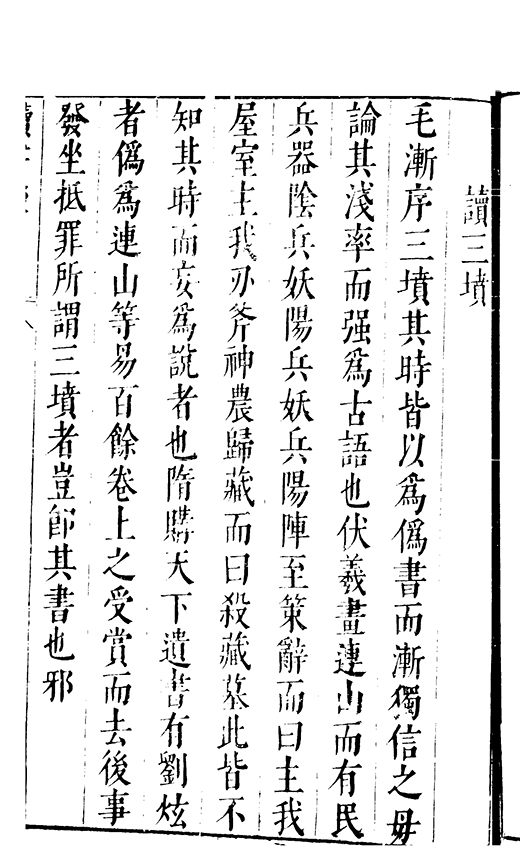 讀三墳
毛漸序三墳其時皆以為偽書而漸獨信之毋
論其淺率而强為古語也伏羲畫連山而有民
兵器陰兵妖陽兵妖兵陽陣至策辭而曰主我
屋室主我刀斧神農歸藏而曰殺藏墓此皆不
知其時而妄為說者也隋購天下遺書有劉炫
者偽為連山等易百餘卷上之受賞而去後事
發坐抵罪所謂三墳者豈即其書也邪